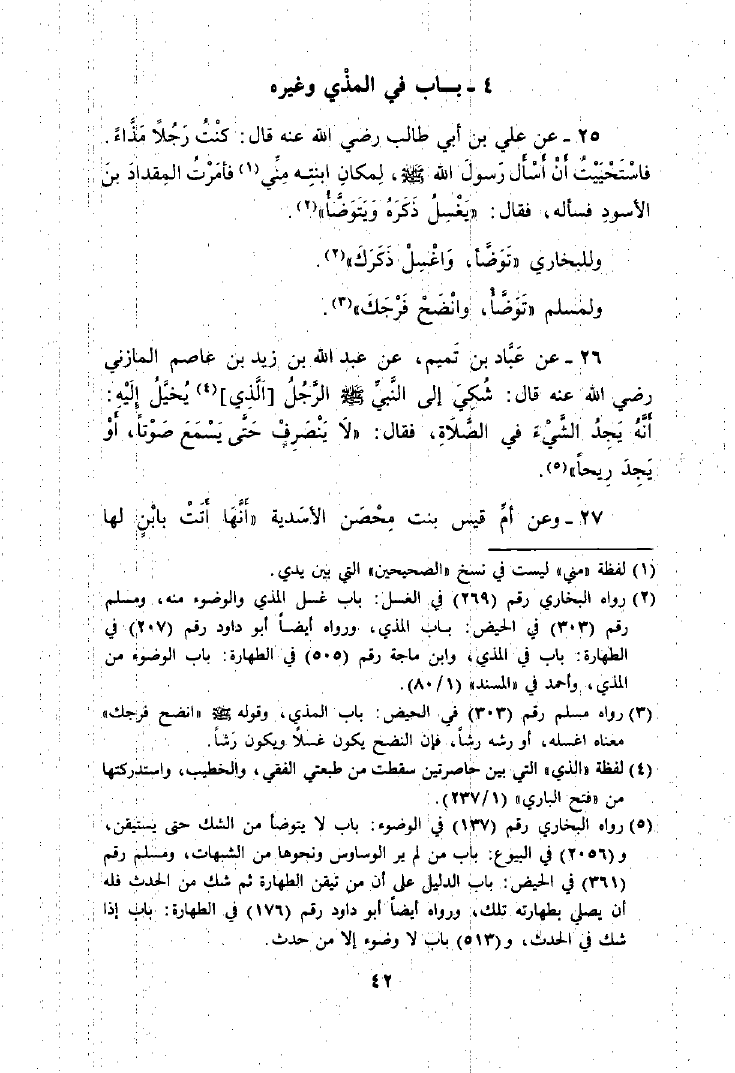 ٤ - بـــاب في المذْي وغيره
٢٥ - عن علي بن أبي طالب رضي الله عنه قال: كنْتُ رَجُلاً مَذَّاءً.
فاسْتَحْيَيْتُ أَنْ أَسْأَل رَسولَ الله ﷺ، لِمكانِ ابنتِـه مِنِّي(١) فأمَرْتُ المِقدادَ بنَ
الأسودِ فسأله، فقال: «يَغْسِلُ ذَكَرَهُ وَيَتَوَضَّأُ»(٢).
وللبخاري «تَوَضَّأ، وَاغْسِلْ ذَكَرَكَ»(٢).
ولمسلم «تَوَضَّأْ، وانْضَحْ فَرْجَكَ»(٣).
٢٦ - عن عَبَّاد بن تَميم، عن عبد الله بن زيد بن عاصم المازني
رضي الله عنه قال: شُكِيَ إلى النَّبيِّ ﷺ الرَّجُلُ [الَّذِي](٤) يُخيَّلُ إلَيْهِ:
أنَّهُ يَجِدُ الشَّيْءَ في الصَّلَاةِ، فقال: «لَا يَنْصَرِفْ حَتَّى يَسْمَعَ صَوْتاً، أَوْ
يَجِدَ رِيحاً»(٥).
٢٧ - وعن أمِّ قيس بنت مِحْصَن الأسَدية «أَنَّهَا أتَتْ بابْنٍ لها
(١) لفظة «مني» ليست في نسخ «الصحيحين» التي بين يدي.
(٢) رواه البخاري رقم (٢٦٩) في الغسل: باب غسل المذي والوضوء منه، ومسلم
رقم (٣٠٣) في الحيض: بـاب المذي، ورواه أيضاً أبو داود رقم (٢٠٧) في
الطهارة: باب في المذي، وابن ماجة رقم (٥٠٥) في الطهارة: باب الوضوء من
المذي، وأحمد في «المسند» (٨٠/١).
(٣) رواه مسلم رقم (٣٠٣) في الحيض: باب المذي، وقوله ﷺ «انضح فرجك»
معناه اغسله، أو رشه رشاً، فإن النضح يكون غسلًا ويكون رَشاً.
(٤) لفظة «الذي» التي بين حاصرتين سقطت من طبعتي الفقي، والخطيب، واستدركتها
من «فتح الباري» (٢٣٧/١).
(٥) رواه البخاري رقم (١٣٧) في الوضوء: باب لا يتوضأ من الشك حتى يستيقن،
و (٢٠٥٦) في البيوع: باب من لم ير الوساوس ونحوها من الشبهات، ومسلم رقم
(٣٦١) في الحيض: باب الدليل على أن من تيقن الطهارة ثم شك من الحدث فله
أن يصلي بطهارته تلك، ورواه أيضاً أبو داود رقم (١٧٦) في الطهارة: باب إذا
شك في الحدث، و (٥١٣) باب لا وضوء إلا من حدث.
٤٢